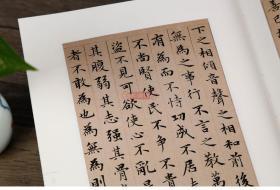 下之相傾音聲之相和前後
無為之事行不言之教萬
有為而不恃功成不居
不尚賢使民不爭不貴
盜不見可欲使心不亂是
其腹弱其志强其骨
者不敢為也為無為則